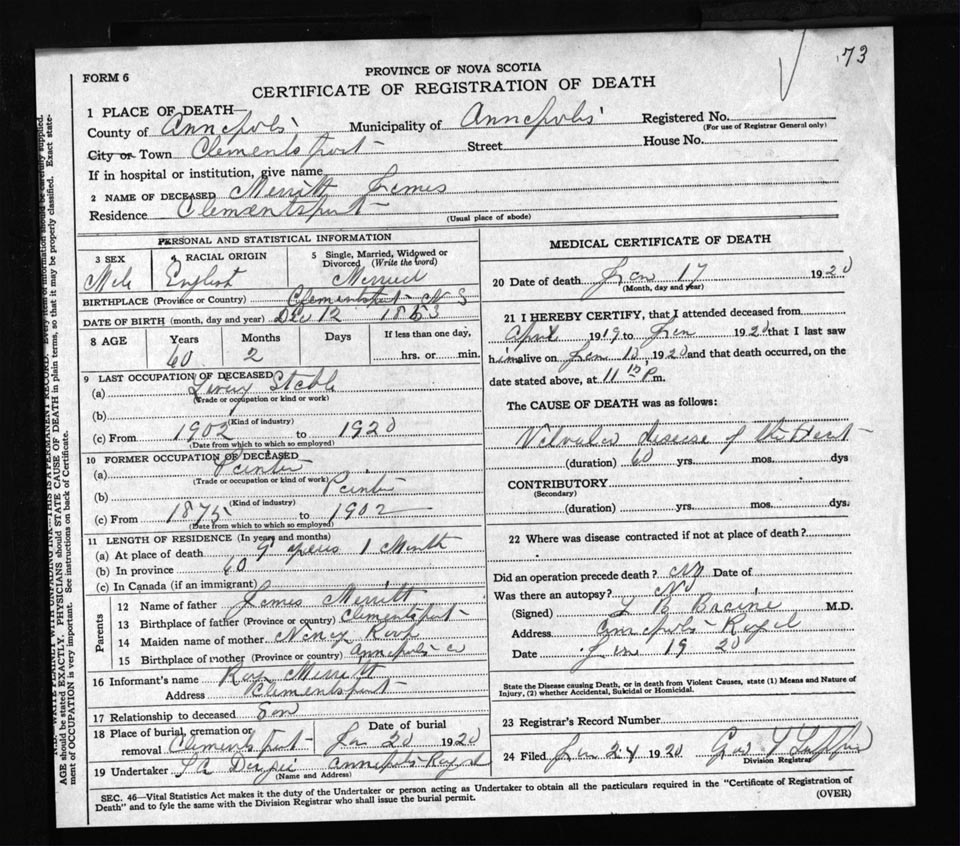 73
FORM 6
PROVINCE OF NOVA SCOTIA
CERTIFICATE OF REGISTRATION OF DEATH
1 PLACE OF DEATH—
County of Annapolis Municipality of Annapolis Registered No.
(For use of Registrar General only)
City or Town Clementsport Street House No.
If in hospital or institution, give name
2 NAME OF DECEASED Merritt James
Residence Clementsport
(Usual place of abode)
PERSONAL AND STATISTICAL INFORMATION
3 SEX 4 RACIAL ORIGIN 5 Single, Married, Widowed or Divorced (Write the word)
Male English Married
BIRTHPLACE (Province or Country) Clementsport N S
DATE OF BIRTH (month, day and year) Dec 12
8 AGE Years Months Days If less than one day,
60 2 hrs. or min.
9 LAST OCCUPATION OF DECEASED
(a) Livery Stable
(Trade or occupation or kind or work)
(b)
(Kind of industry)
(c) From 1902 to 1920
(Date from which to which so employed)
10 FORMER OCCUPATION OF DECEASED
(a) Painter
(Trade or occupation or kind of work)
(b) Painter
(Kind of industry)
(c) From 1875 to 1902
(Date from which to which so employed)
11 LENGTH OF RESIDENCE (In years and months)
(a) At place of death years 1 Month
(b) In province 60
(c) In Canada (if an immigrant)
Parents
12 Name of father James Merritt
13 Birthplace of father (Province or country) Clementsport
14 Maiden name of mother Nancy Roop
15 Birthplace of mother (Province or country) Annapolis Co
16 Informant's name Roy Merritt
Address Clementsport
17 Relationship to deceased Son
18 Place of burial, cremation or removal Clementsport Date of burial Jan 20 1920
19 Undertaker Annapolis Royal
(Name and Address)
MEDICAL CERTIFICATE OF DEATH
20 Date of death Jan 17 1920
(Month, day and year)
21 I HEREBY CERTIFY, that I attended deceased from
April 1919 to Jan 1920 that I last saw
him alive on Jan 10, 1920 and that death occurred, on the
date stated above, at 11 P m.
The CAUSE OF DEATH was as follows:
Valvular disease of the Heart
(duration) 60 yrs. mos. dys
CONTRIBUTORY
(Secondary)
(duration) yrs. mos. dys.
22 Where was disease contracted if not at place of death?
Did an operation precede death? No Date of
Was there an autopsy? No
(Signed) L B Braine M.D.
Address Annapolis Royal
Date Jan 19 20
State the Disease causing Death, or in death from Violent Causes, state (1) Means and Nature of
Injury, (2) whether Accidental, Suicidal or Homicidal.
23 Registrar's Record Number
24 Filed Jan 24 1920 Geo
Division Registrar
SEC. 46—Vital Statistics Act makes it the duty of the Undertaker or person acting as Undertaker to obtain all the particulars required in the "Certificate of Registration of
Death" and to fyle the same with the Division Registrar who shall issue the burial permit.
(OVER)
AGE should be stated EXACTLY. PHYSICIANS should STATE CAUSE OF DEATH in plain terms, so that it may be properly classified. Exact state-
ment of OCCUPATION is very important. See instructions on back of Certificate.